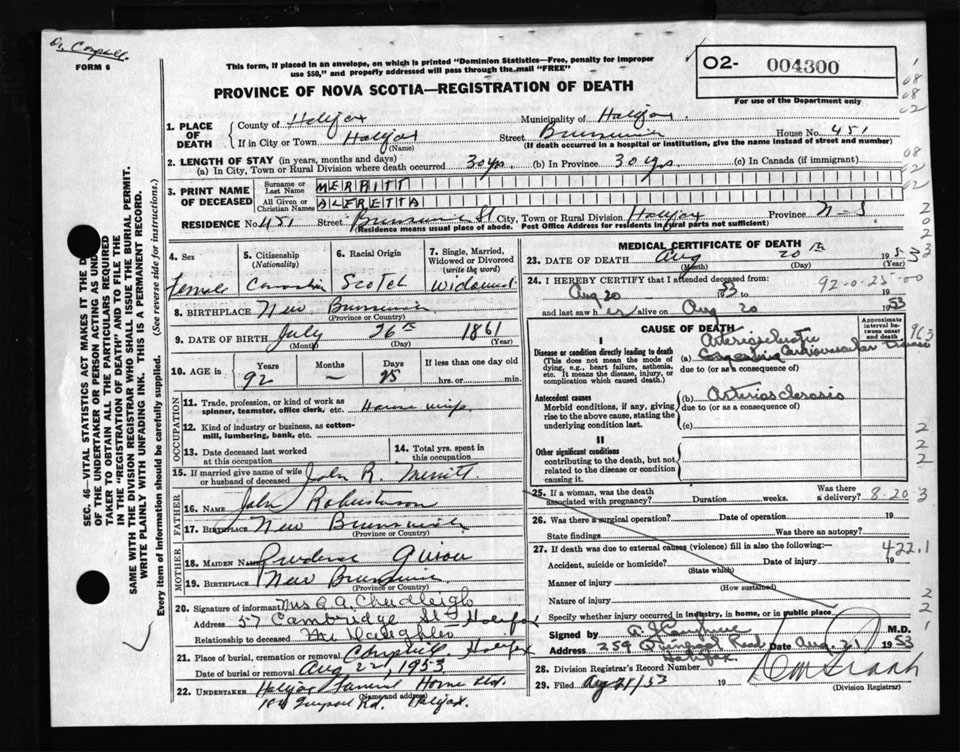 FORM 6
This form, if placed in an envelope, on which is printed "Dominion Statistics—Free, penalty for improper
use $50," and properly addressed will pass through the mail "FREE"
O2- 004300
For use of the Department only
PROVINCE OF NOVA SCOTIA—REGISTRATION OF DEATH
1. PLACE OF DEATH
County of Halifax Municipality of Halifax
If in City or Town Halifax Street Brunswick House No. 451
(Name) (If death occurred in a hospital or institution, give the name instead of street and number)
2. LENGTH OF STAY (in years, months and days)
(a) In City, Town or Rural Division where death occurred 30 yrs. (b) In Province 30 yrs. (c) In Canada (if immigrant)
3. PRINT NAME OF DECEASED
Surname or Last Name MERRITT
All Given or Christian Names ALERETTA
RESIDENCE No. 451 Street Brunswick St City, Town or Rural Division Halifax Province N-S.
(Residence means usual place of abode. Post Office Address for residents in rural parts not sufficient)
4. Sex
Female
5. Citizenship (Nationality)
Canadian
6. Racial Origin
Scotch
7. Single, Married, Widowed or Divorced (write the word)
Widowed
8. BIRTHPLACE New Brunswick
(Province or Country)
9. DATE OF BIRTH July 26th 1861
(Month) (Day) (Year)
10. AGE in Years Months Days If less than one day old
92 — 25 hrs. or min.
OCCUPATION
11. Trade, profession, or kind of work as
spinner, teamster, office clerk, etc. House wife
12. Kind of industry or business, as cotton-
mill, lumbering, bank, etc.
13. Date deceased last worked at this occupation
14. Total yrs. spent in this occupation
15. If married give name of wife
or husband of deceased John R. Merritt
FATHER
16. NAME John
17. BIRTHPLACE New Brunswick
(Province or Country)
MOTHER
18. MAIDEN NAME Prudence
19. BIRTHPLACE New Brunswick
(Province or Country)
20. Signature of informant Mrs A. A. Chudleigh
Address 57 Cambridge St Halifax
Relationship to deceased Daughter
21. Place of burial, cremation or removal Halifax
Date of burial or removal Aug 22, 1953
22. UNDERTAKER Halifax Funeral Home Ltd.
(Name and address)
Rd. Halifax.
MEDICAL CERTIFICATE OF DEATH
23. DATE OF DEATH Aug 20th 1953
(Month) (Day) (Year)
24. I HEREBY CERTIFY that I attended deceased from:
Aug 20 53 to 19
and last saw her alive on Aug 20 1953
92-0-25-00
CAUSE OF DEATH
Approximate interval between onset and death
I
Disease or condition directly leading to death
(This does not mean the mode of
dying, e.g., heart failure, asthenia,
etc. It means the disease, injury, or
complication which caused death.)
(a) Cardiovascular Disease
due to (or as consequence of)
Antecedent causes
Morbid conditions, if any, giving
rise to the above cause, stating the
underlying condition last.
(b) Arteriosclerosis
due to (or as a consequence of)
(c)
II
Other significant conditions
contributing to the death, but not
related to the disease or condition
causing it.
25. If a woman, was the death
associated with pregnancy? Duration weeks. Was there a delivery? 8-20 3
26. Was there a surgical operation? Date of operation 19
State findings Was there an autopsy?
27. If death was due to external causes (violence) fill in also the following:— 422.1
Accident, suicide or homicide? Date of injury 19
(State which)
Manner of injury
(How sustained)
Nature of injury
Specify whether injury occurred in industry, in home, or in public place
Signed by M.D.
Address 259 Quinpool Road Date Aug. 21 1953
Halifax.
28. Division Registrar's Record Number
29. Filed Aug 21/53 19
(Division Registrar)
SEC. 46—VITAL STATISTICS ACT MAKES IT THE D
OF THE UNDERTAKER OR PERSON ACTING AS UND
TAKER TO OBTAIN ALL THE PARTICULARS REQUIRED
IN THE "REGISTRATION OF DEATH" AND TO FILE THE
SAME WITH THE DIVISION REGISTRAR WHO SHALL ISSUE THE BURIAL PERMIT.
WRITE PLAINLY WITH UNFADING INK. THIS IS A PERMANENT RECORD.
Every item of information should be carefully supplied. (See reverse side for instructions.)